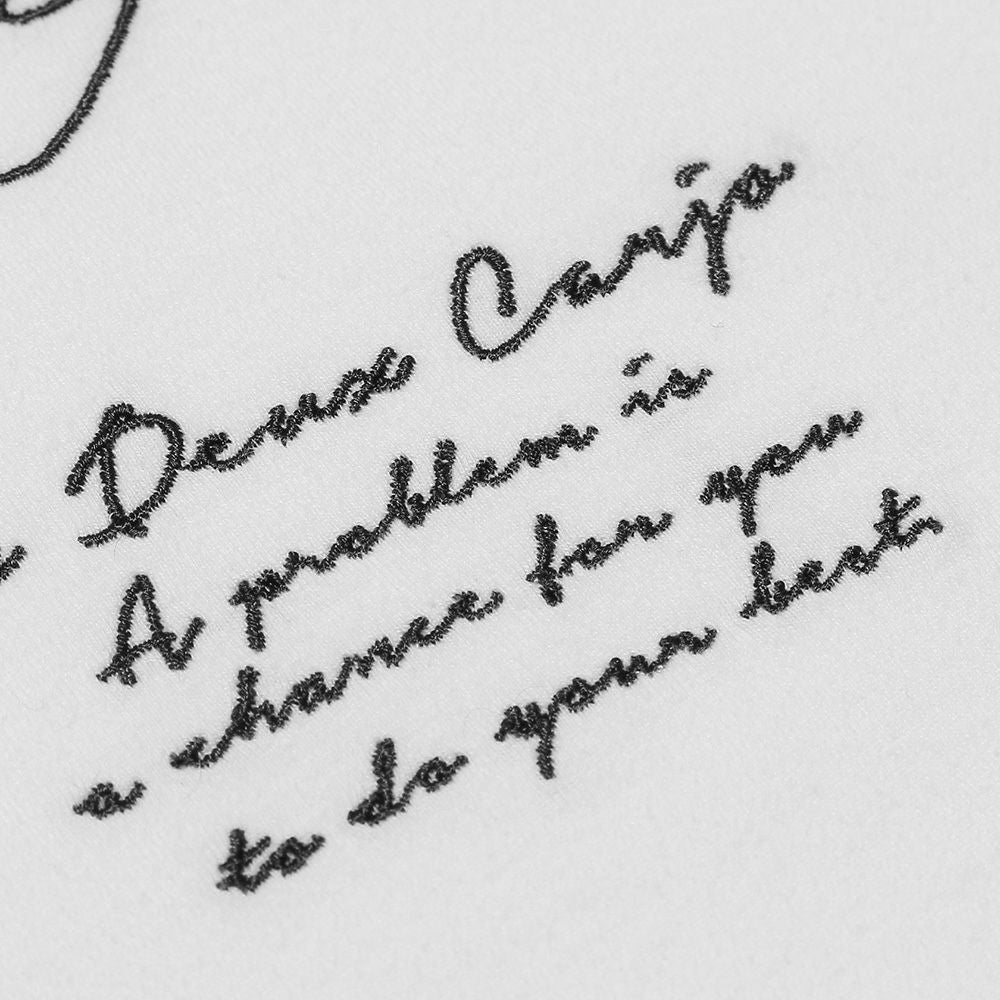 Deux Carijo
A problem is
a chance for you
to do your best.